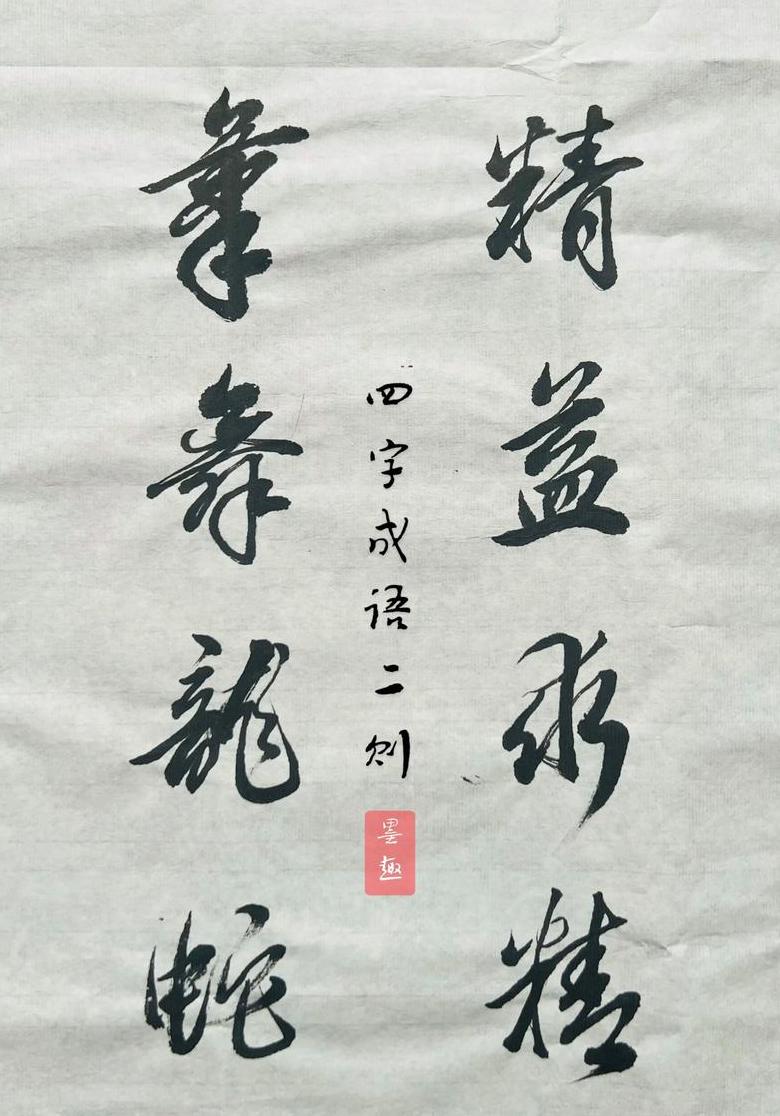 精益求精
四字成语二则
墨趣
筆舞龍蛇